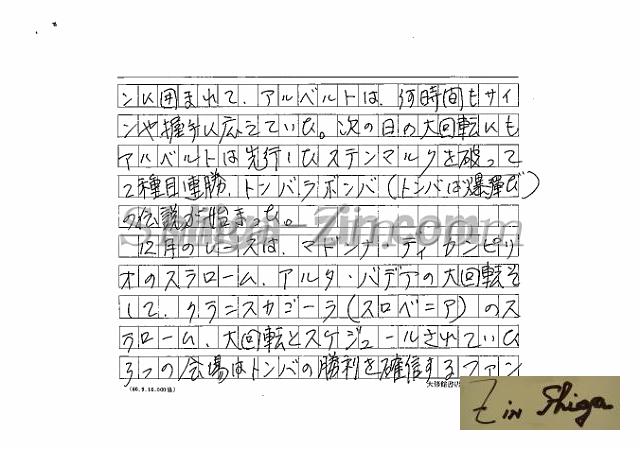 ンに囲まれて、アルベルトは、何時間もサイ
ンや握手に応えていた。次の日の大回転にも
アルベルトは先行したステンマルクを破って
2種目連勝、トンバ・ラ・ボンバ(トンバは爆弾だ)
の伝説が始まった。
12月のレースは、マドンナ・ディ・カンピリ
オのスラローム、アルタ・バディアの大回転そ
して、クラニスカゴーラ(スロベニア)のス
ラローム、大回転とスケジュールされていた
3つの会場はトンバの勝利を確信するファン
(60.9.10,000㊞) 大修館書店
Shiga-Zin.com
Z in Shiga